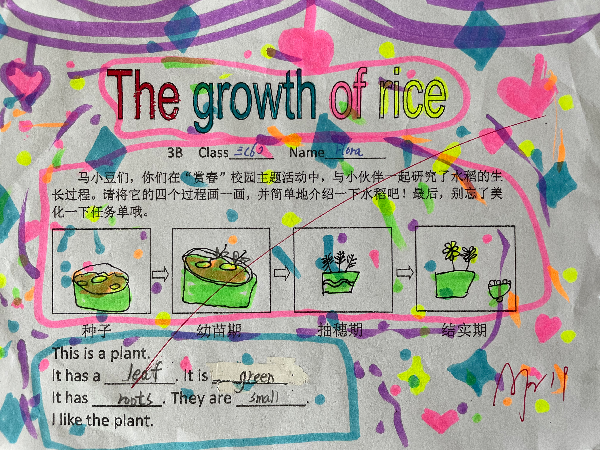 The growth of rice
3B Class Name Flora
马小豆们，你们在“赏春”校园主题活动中，与小伙伴一起研究了水稻的生
长过程。请将它的四个过程画一画，并简单地介绍一下水稻吧！最后，别忘了美
化一下任务单哦。
种子 幼苗期 抽穗期 结实期
This is a plant.
It has a leaf. It is green.
It has roots. They are small.
I like the plant.